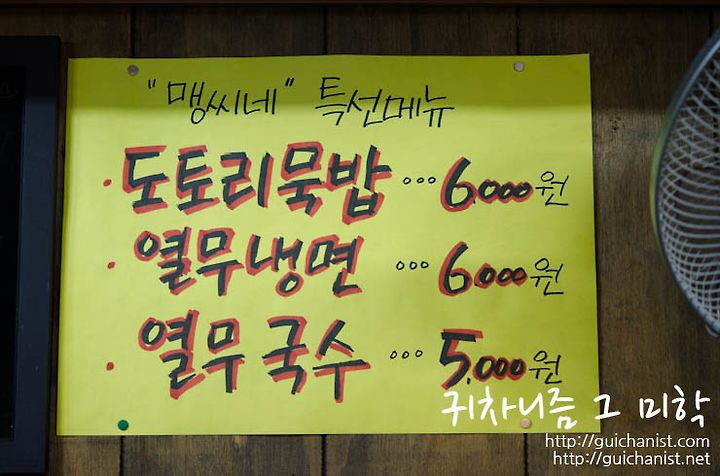 "맹씨네" 특선메뉴
· 도토리묵밥 ... 6.000원
· 열무냉면 ... 6.000원
· 열무국수 ... 5.000원
귀차니즘 그 미학
http://guichanist.com
http://guichanist.net